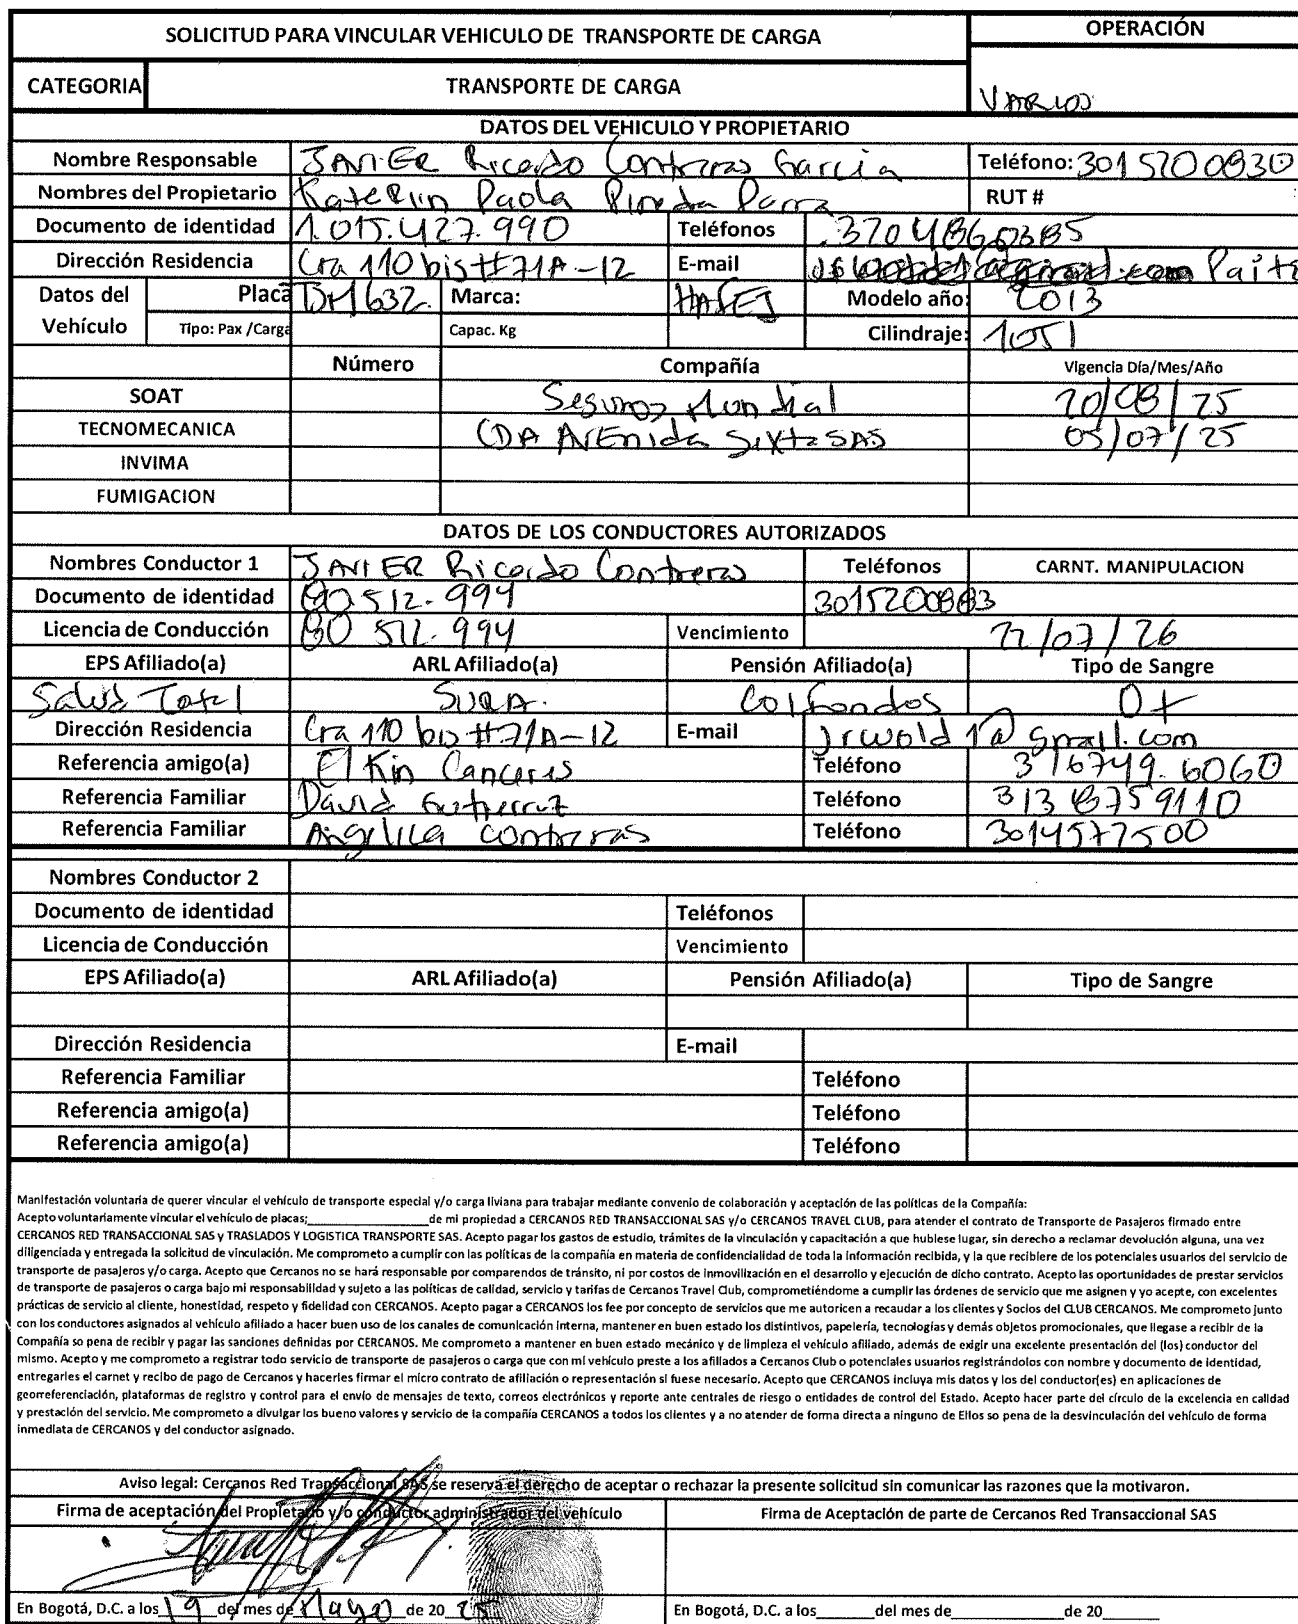 SOLICITUD PARA VINCULAR VEHICULO DE TRANSPORTE DE CARGA OPERACIÓN
CATEGORIA TRANSPORTE DE CARGA VARIOS
DATOS DEL VEHICULO Y PROPIETARIO
Nombre Responsable JAVIER Ricardo Contreras García Teléfono: 3015200830
Nombres del Propietario Katerin Paola Pineda Parra RUT #
Documento de identidad 1.015.427.990 Teléfonos
Dirección Residencia Cra 110 bis #71A-12 E-mail
Datos del Vehículo Placa Marca: HAFEI Modelo año: 2013
Tipo: Pax /Carga Capac. Kg Cilindraje: 1051
Número Compañía Vigencia Día/Mes/Año
SOAT Seguros Mundial 20/08/25
TECNOMECANICA CDA AVEnida Sexta SAS 05/07/25
INVIMA
FUMIGACION
DATOS DE LOS CONDUCTORES AUTORIZADOS
Nombres Conductor 1 JAVIER Ricardo Contreras Teléfonos CARNT. MANIPULACION
Documento de identidad 80512.994
Licencia de Conducción 80 512.994 Vencimiento 22/07/26
EPS Afiliado(a) ARL Afiliado(a) Pensión Afiliado(a) Tipo de Sangre
Salud Total SURA. Colfondos O+
Dirección Residencia Cra 110 bis #71A-12 E-mail jrwold1@gmail.com
Referencia amigo(a) Elkin Canceres Teléfono 316749.6060
Referencia Familiar David Gutierrez Teléfono 313 8759110
Referencia Familiar Angelica contreras Teléfono 3014577500
Nombres Conductor 2
Documento de identidad Teléfonos
Licencia de Conducción Vencimiento
EPS Afiliado(a) ARL Afiliado(a) Pensión Afiliado(a) Tipo de Sangre
Dirección Residencia E-mail
Referencia Familiar Teléfono
Referencia amigo(a) Teléfono
Referencia amigo(a) Teléfono
Manifestación voluntaria de querer vincular el vehículo de transporte especial y/o carga liviana para trabajar mediante convenio de colaboración y aceptación de las políticas de la Compañía:
Acepto voluntariamente vincular el vehículo de placas;____________________de mi propiedad a CERCANOS RED TRANSACCIONAL SAS y/o CERCANOS TRAVEL CLUB, para atender el contrato de Transporte de Pasajeros firmado entre
CERCANOS RED TRANSACCIONAL SAS y TRASLADOS Y LOGISTICA TRANSPORTE SAS. Acepto pagar los gastos de estudio, trámites de la vinculación y capacitación a que hubiese lugar, sin derecho a reclamar devolución alguna, una vez
diligenciada y entregada la solicitud de vinculación. Me comprometo a cumplir con las políticas de la compañía en materia de confidencialidad de toda la información recibida, y la que recibiere de los potenciales usuarios del servicio de
transporte de pasajeros y/o carga. Acepto que Cercanos no se hará responsable por comparendos de tránsito, ni por costos de inmovilización en el desarrollo y ejecución de dicho contrato. Acepto las oportunidades de prestar servicios
de transporte de pasajeros o carga bajo mi responsabilidad y sujeto a las políticas de calidad, servicio y tarifas de Cercanos Travel Club, comprometiéndome a cumplir las órdenes de servicio que me asignen y yo acepte, con excelentes
prácticas de servicio al cliente, honestidad, respeto y fidelidad con CERCANOS. Acepto pagar a CERCANOS los fee por concepto de servicios que me autoricen a recaudar a los clientes y Socios del CLUB CERCANOS. Me comprometo junto
con los conductores asignados al vehículo afiliado a hacer buen uso de los canales de comunicación interna, mantener en buen estado los distintivos, papelería, tecnologías y demás objetos promocionales, que llegase a recibir de la
Compañía so pena de recibir y pagar las sanciones definidas por CERCANOS. Me comprometo a mantener en buen estado mecánico y de limpieza el vehículo afiliado, además de exigir una excelente presentación del (los) conductor del
mismo. Acepto y me comprometo a registrar todo servicio de transporte de pasajeros o carga que con mi vehículo preste a los afiliados a Cercanos Club o potenciales usuarios registrándolos con nombre y documento de identidad,
entregarles el carnet y recibo de pago de Cercanos y hacerles firmar el micro contrato de afiliación o representación si fuese necesario. Acepto que CERCANOS incluya mis datos y los del conductor(es) en aplicaciones de
georreferenciación, plataformas de registro y control para el envío de mensajes de texto, correos electrónicos y reporte ante centrales de riesgo o entidades de control del Estado. Acepto hacer parte del círculo de la excelencia en calidad
y prestación del servicio. Me comprometo a divulgar los bueno valores y servicio de la compañía CERCANOS a todos los clientes y a no atender de forma directa a ninguno de Ellos so pena de la desvinculación del vehículo de forma
inmediata de CERCANOS y del conductor asignado.
Aviso legal: Cercanos Red Transaccional SAS se reserva el derecho de aceptar o rechazar la presente solicitud sin comunicar las razones que la motivaron.
Firma de aceptación del Propietario y/o conductor administrador del vehículo Firma de Aceptación de parte de Cercanos Red Transaccional SAS
En Bogotá, D.C. a los 19 del mes de Mayo de 20 25 En Bogotá, D.C. a los______del mes de____________de 20____